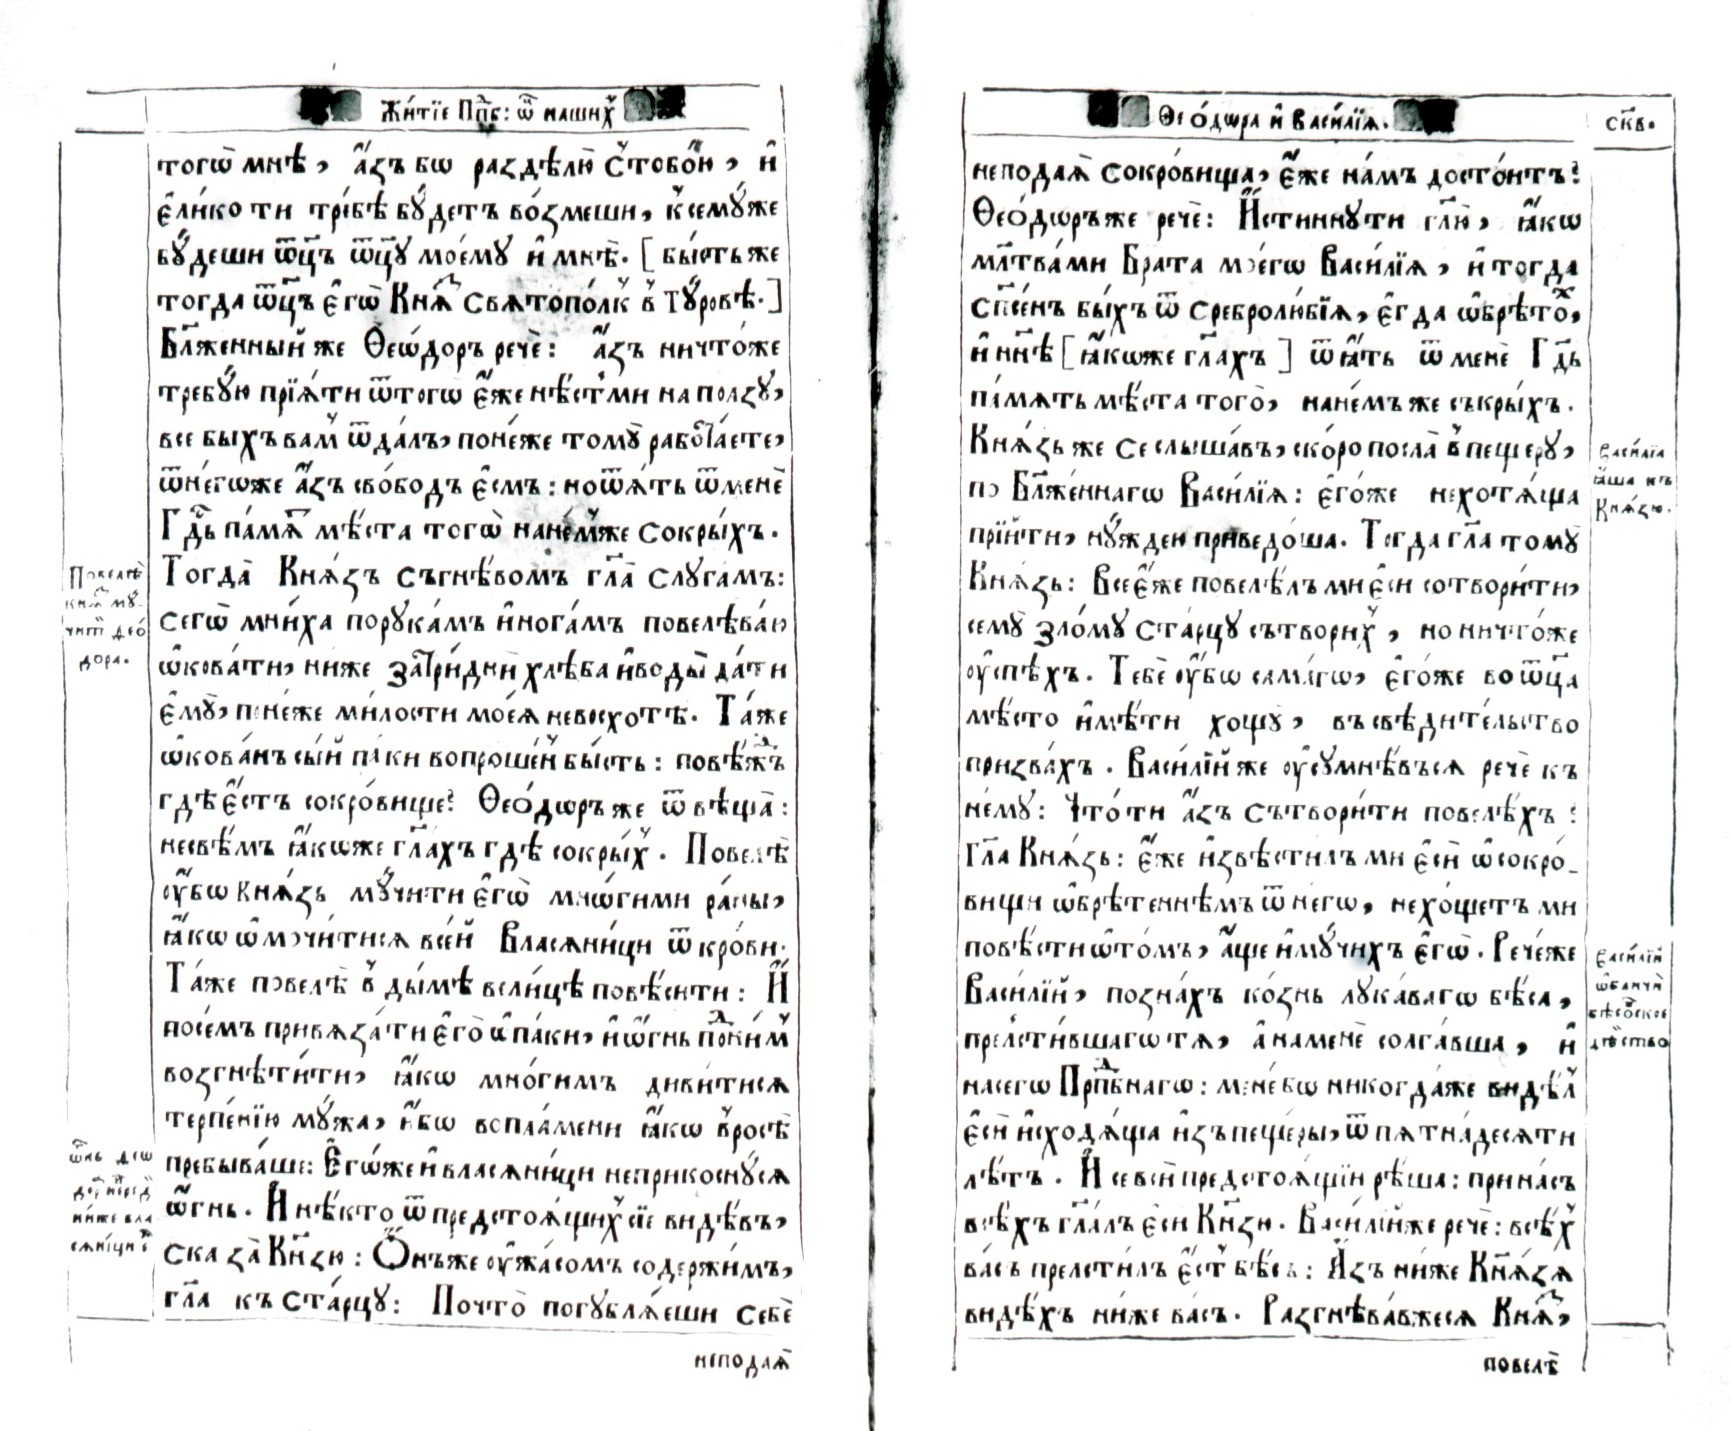 Жи́тїе Пп҃б: ѿ на́шиⷯ
тогѡ̀ мнѣ̀, а҆́зъ бѡ раздѣлю̀ с̾тобо́ю, и҆
є҆ли́ко ти тре́бѣ бꙋ́детъ во́змеши, к̾семꙋ́же
бꙋ́деши ѿц҃ъ ѿц҃ꙋ моемꙋ̀ и҆ мнѣ̀. [ бы́сть же
тогда ѿц҃ъ є҆гѡ̀ Кнѧ҃ Свѧтопо́лк̾ в̾ Тꙋ́ровѣ. ]
Бл҃же́нный же Ѳеѡ́доръ речѐ: а҆́зъ ничто́же
тре́бꙋю прїѧ́ти ѿтогѡ̀ є҆́же нѣ́стми на по́лзꙋ,
все бы́хъ вам̾ ѿда́лъ, поне́же томꙋ̀ рабо́таете,
ѿнегѡ́же а҆́зъ сво́бодъ є҆́смъ: ноѿѧ́тъ ѿменѐ
Гд҃ь па́мѧⷮ мѣ́ста тогѡ̀ нане́м̾же сокры́хъ.
Тогда̀ Кнѧ́зъ съгнѣ́вомъ гл҃а слꙋга́мъ:
сегѡ̀ мни́ха порꙋка́мъ и҆нога́мъ повелѣва́ю
ѡ҆кова́ти, ниже за́три́дни̑ хлѣ́ба и҆воды̀ да́ти
є҆мꙋ̀, поне́же ми́лости моеѧ̀ невосхотѣ̀. Та́же
ѡ҆кова́нъ сы́й па́ки вопроше́н̾ бы́сть: повѣ́жⷣъ
гдѣ̀ є҆́стъ сокро́вище? Ѳео́дѡръ же ѿвѣща̀:
несвѣ́мъ ꙗ҆́коже гл҃ахъ гдѣ̀ сокры́х̾. Повелѣ̀
ᲂу҆́бѡ кнѧ́зь мꙋ́чити є҆гѡ̀ мнѡ́гими ра́ны,
ꙗ҆́кѡ ѡ҆мочи́тисѧ все́й Власѧни́ци ѿ кро́ви.
Та́же повелѣ̀ в̾ ды́мѣ вели́цѣ повѣ́сити: И҆
посе́мъ привѧза́ти є҆го̀ ѡ҆па́ки, и҆ѻ҆гнь поⷣни́м̾
возгнѣти́ти, ꙗ҆́кѡ мно́гимъ диви́тисѧ
терпе́нїю мꙋ́жа, и҆́бѡ вопла́мени ꙗ҆́кѡ в̾росѣ̀
пребыва́ше: Є҆гѡ́же и҆ власѧни́ци неприкоснꙋ́сѧ
ѻ҆гнь. И҆ нѣ́кто ѿ предстоѧ́щих̾ сїе ви́дѣвъ,
сказа̀ Кн҃зю: Ѻ҆́нъже ᲂу҆жа́сомъ содержи́мъ,
гл҃а къ ста́рцꙋ: Почто̀ погꙋблѧ́еши себѐ
неподаѧ̀
Повелѣ̀
кнⷾѧ мꙋ́
чит̾ Ѳео́
дора.
Ѳео́дѡра и҆ Васи́лїѧ.
ск҃в.
неподаѧ̀ сокро́вища, є҆́же на́мъ досто́итъ?
Ѳео́дѡръже речѐ: И҆́стиннꙋти гл҃ю, ꙗ҆́кѡ
мл҃тва́ми Бра́та моегѡ Васи́лїѧ, и҆ тогда
сп҃се́нъ бы́хъ ѿ сребролю́бїѧ, є҆гда ѡ҆брѣто́ⷯ,
и҆ нн҃ѣ [ ꙗ҆́кѡже гл҃ахъ ] ѿѧ́тъ ѿ менѐ Гд҃ь
па́мѧть мѣ́ста того̀, нане́мъ же съкры́хъ.
Кнѧ́зь же се слыша́въ, ско́ро посла̀ в̾ пеще́рꙋ,
по Бл҃же́ннагѡ Васи́лїѧ: є҆го́же нехотѧ́ща
прїити, нꙋ́ждеи приведо́ша. Тогда гл҃а томꙋ̀
Кнѧ́зь: Все є҆́же повелѣ́лъ ми є҆си сотвори́ти,
семꙋ̀ зло́мꙋ ста́рцꙋ сътвори́х̾, но ничто́же
ᲂу҆спѣ́хъ. Тебѐ ᲂу҆́бѡ сама́гѡ, є҆го́же во ѿц҃а
мѣ́сто и҆мѣ́ти хощꙋ̀, въ свѣди́тельство
призва́хъ. Васи́лїй же ᲂу҆сꙋмнѣ́въсѧ речѐ къ
немꙋ̀: Что́ ти а҆́зъ сътвори́ти повелѣ́хъ?
Гл҃а Кнѧ́зь: є҆́же и҆звѣсти́лъ ми є҆сѝ ѡ҆сокро́-
вищи ѡ҆брѣте́ннѣмъ ѿ негѡ, нехо́щетъ ми
повѣ́сти ѡ҆то́мъ, а҆́ще и҆мꙋ́чихъ є҆гѡ̀. Рече́же
Васи́лїй, позна́хъ ко́знь лꙋка́вагѡ бѣ́са,
прелсти́вшагѡ тѧ, а҆ наменѐ солга́вша, и҆
насегѡ Прⷣпбнагѡ: мене́ бѡ никогда́же видѣ́л̾
є҆сѝ и҆сходѧ́ща и҆зъ пеще́ры, ѿ пѧтна́десѧти
лѣ́тъ. И҆ се всѝ предстоѧ́щїи рѣ́ша: при на́съ
всѣ́хъ гл҃алъ є҆си Кн҃зи. Васи́лїйже речѐ: всѣ́х̾
ва́съ прелсти́лъ є҆́ст̾ бѣ́съ: А҆́зъ ни́же Кнѧ́зѧ
ви́дѣхъ ни́же ва́съ. Разгнѣва́вжесѧ Кнѧ҃,
повелѣ̀
Васи́лїа
ꙗ҆́ша къ
Кнѧ́зю.
Васи́лїй
ѡ҆бличѝ
бѣсо́вское
дѣ́йство